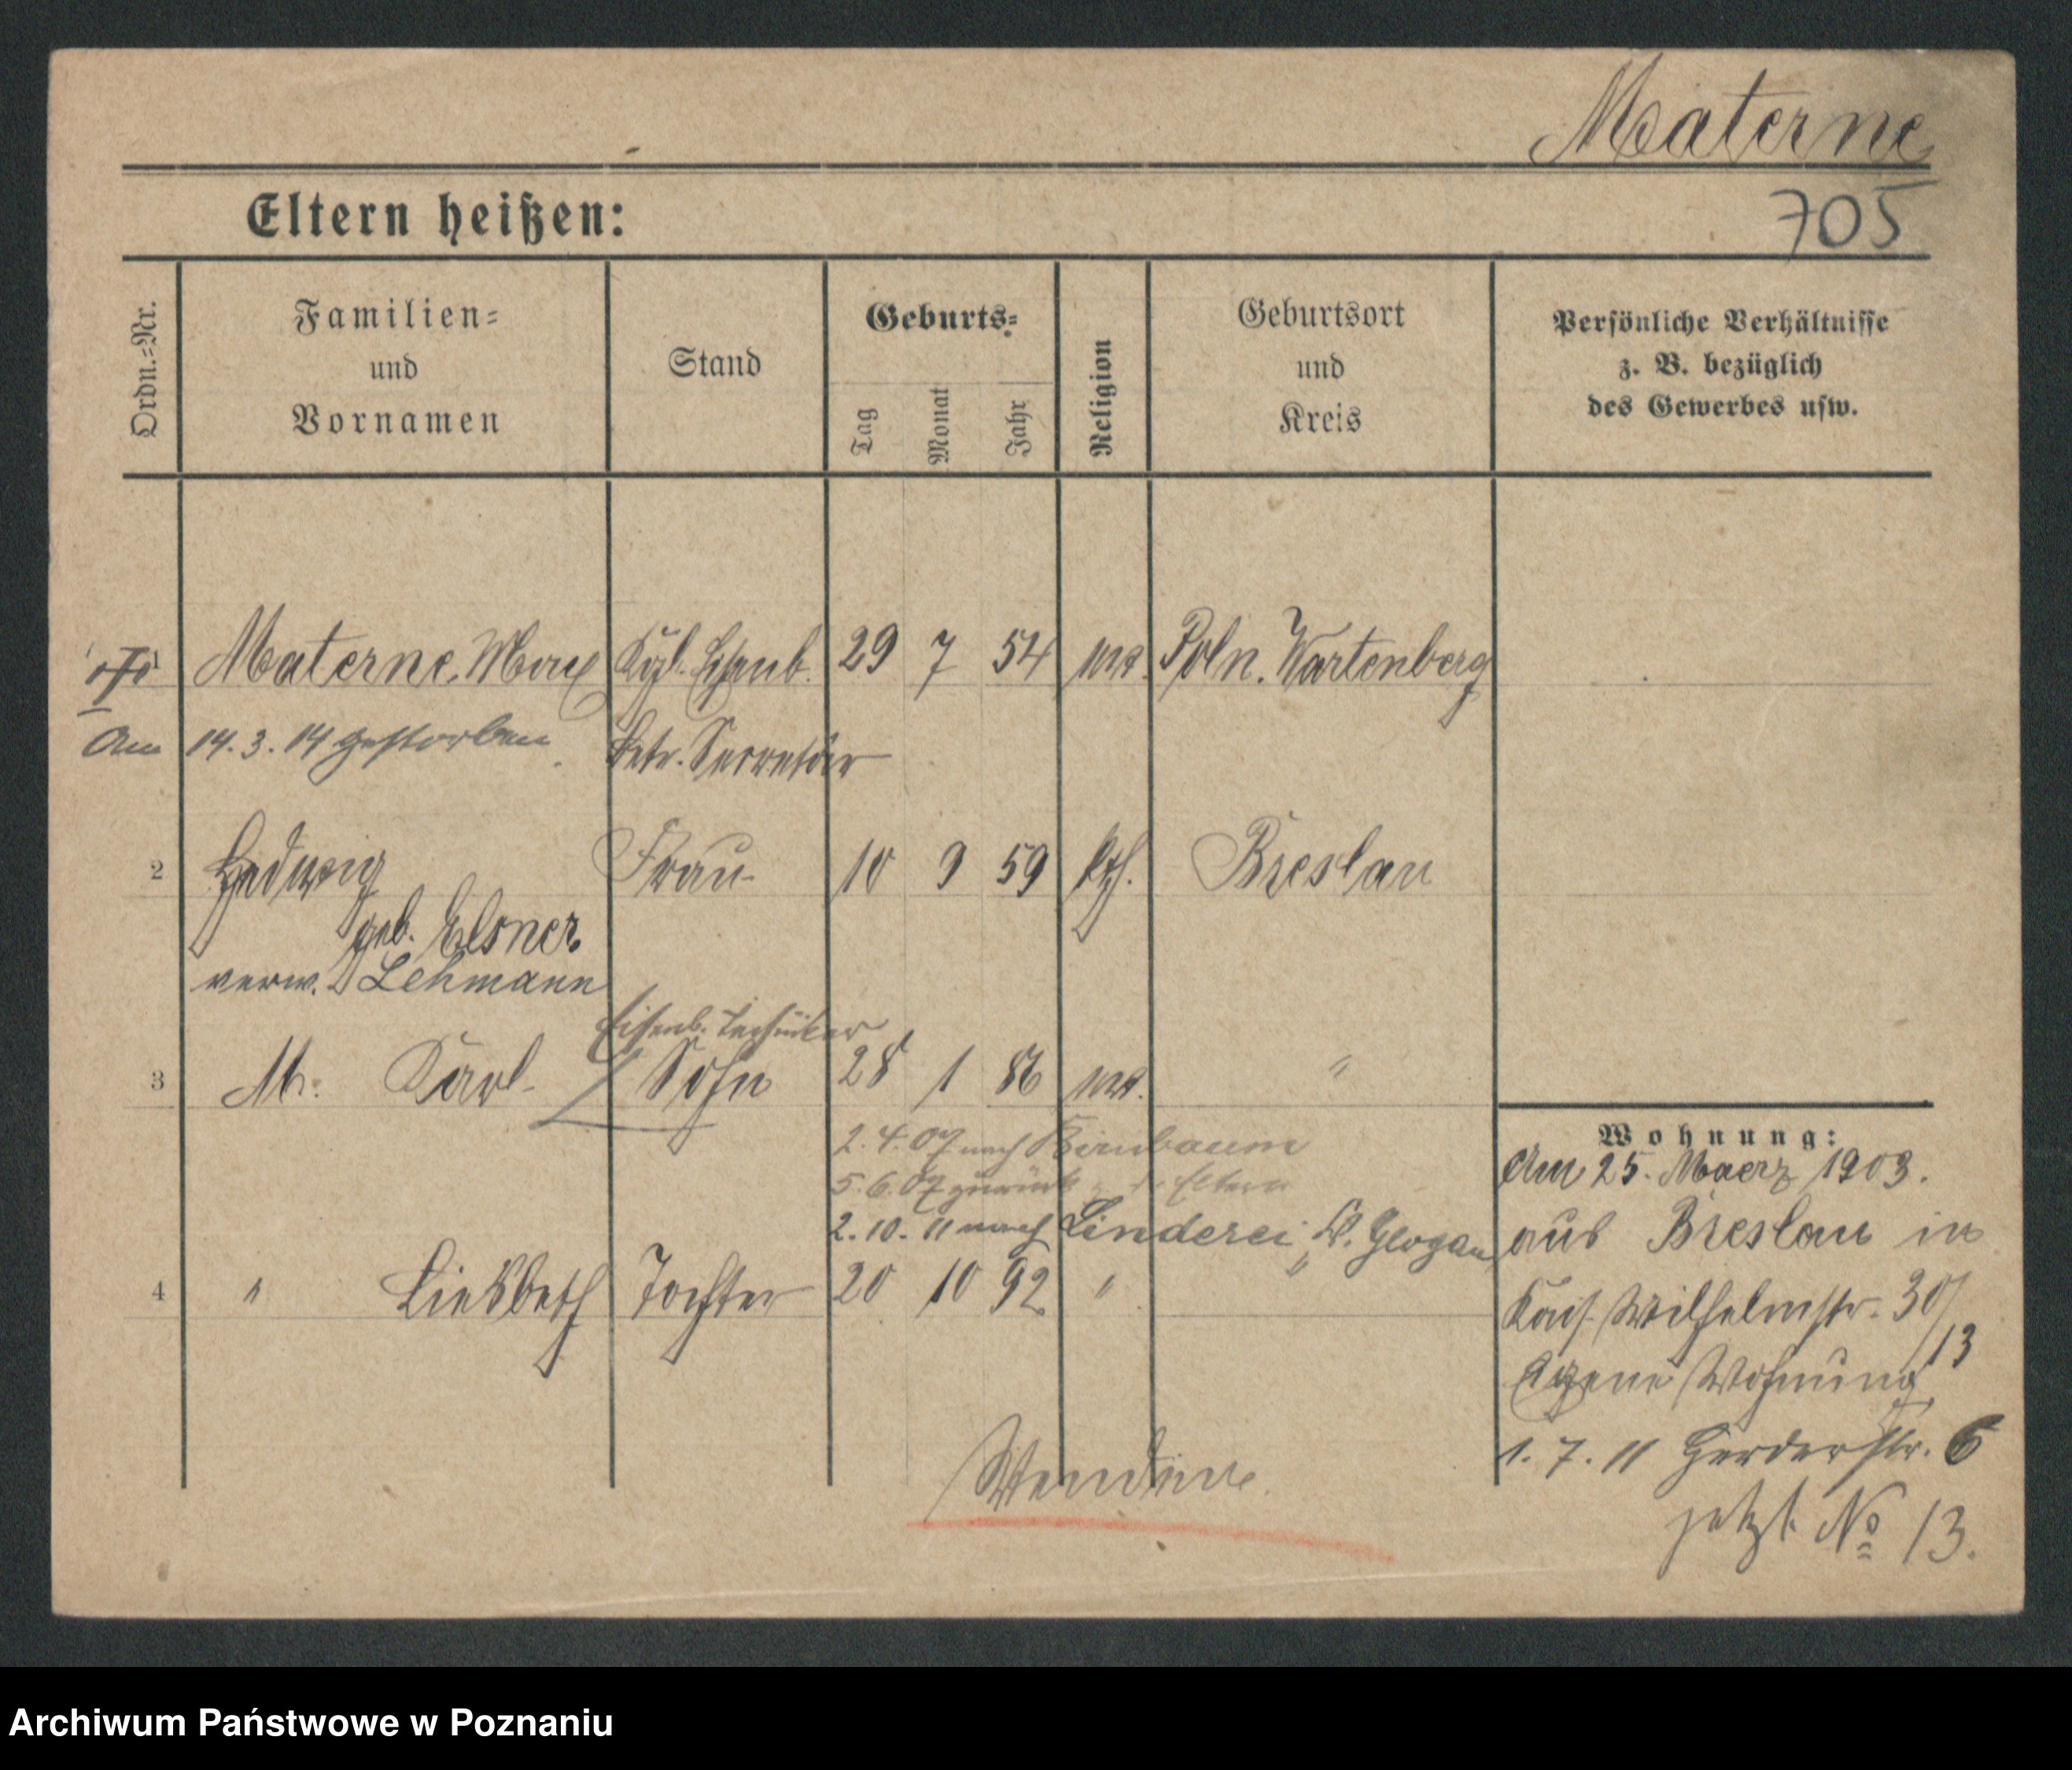 Materne
705
Eltern heißen:
Ordn.=Nr.
Familien=
und
Vornamen
Stand
Geburts=
Tag
Monat
Jahr
Religion
Geburtsort
und
Kreis
Persönliche Verhältnisse
z. B. bezüglich
des Gewerbes usw.
Materne, Max Kgl. Eisenb. 29 7 54 Poln. Wartenberg
Am 14. 3. 14 gestorben. Betr. Secretär
2 Hedwig Frau 10 9 59 kth. Breslau
geb. Elsner
verw. Lehmann
Eisenb. Techniker
3 M. Karl Sohn 28 1 86 "
2. 4. 07 nach Birnbaum
5. 6. 07 zurück Eltern
2. 10. 11 nach Linderei, Kr. Glogau
4 " Liesbeth Tochter 20 10 92 " "
Wohnung:
Am 25. Maerz 1903.
aus Breslau in
Kais. Wilhelmstr. 30/
13
Eigene Wohnung
1. 7. 11 Herderstr. 6
jetzt No 13.
Wenden
Archiwum Państwowe w Poznaniu